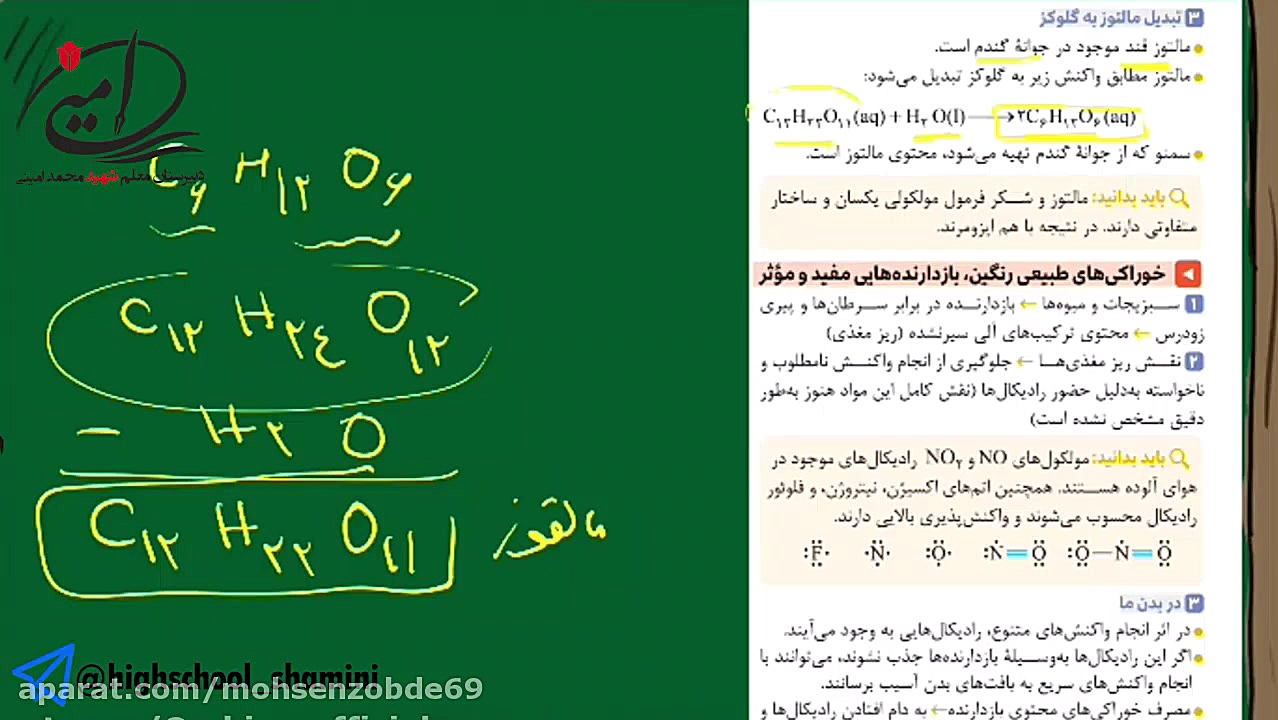 امینی
دبیرستان معلم شهید محمد امینی
C۶ H۱۲ O۶
C۱۲ H۲٤ O۱۲
– H۲ O
C۱۲ H۲۲ O۱۱ مالتوز
@highschool_shamini
aparat.com/mohsenzobde69
۳ تبدیل مالتوز به گلوکز
مالتوز قند موجود در جوانهٔ گندم است.
مالتوز مطابق واکنش زیر به گلوکز تبدیل می‌شود:
C۱۲H۲۲O۱۱(aq) + H۲O(l) ⟶ ۲C۶H۱۲O۶(aq)
سمنو که از جوانهٔ گندم تهیه می‌شود، محتوی مالتوز است.
باید بدانید: مالتوز و شکر فرمول مولکولی یکسان و ساختار
متفاوتی دارند. در نتیجه با هم ایزومرند.
خوراکی‌های طبیعی رنگین، بازدارنده‌هایی مفید و مؤثر
۱ سبزیجات و میوه‌ها ← بازدارنده در برابر سرطان‌ها و پیری
زودرس ← محتوی ترکیب‌های آلی سیرنشده (ریز مغذی)
۲ نقش ریز مغذی‌ها ← جلوگیری از انجام واکنش نامطلوب و
ناخواسته به‌دلیل حضور رادیکال‌ها (نقش کامل این مواد هنوز به‌طور
دقیق مشخص نشده است)
باید بدانید: مولکول‌های NO و NO۲ رادیکال‌های موجود در
هوای آلوده هستند. همچنین اتم‌های اکسیژن، نیتروژن، و فلوئور
رادیکال محسوب می‌شوند و واکنش‌پذیری بالایی دارند.
F N O N=O O–N=O
۳ در بدن ما
در اثر انجام واکنش‌های متنوع، رادیکال‌هایی به وجود می‌آیند.
اگر این رادیکال‌ها به‌وسیلهٔ بازدارنده‌ها جذب نشوند، می‌توانند با
انجام واکنش‌های سریع به بافت‌های بدن آسیب برسانند.
مصرف خوراکی‌های محتوی بازدارنده ← به دام افتادن رادیکال‌ها و